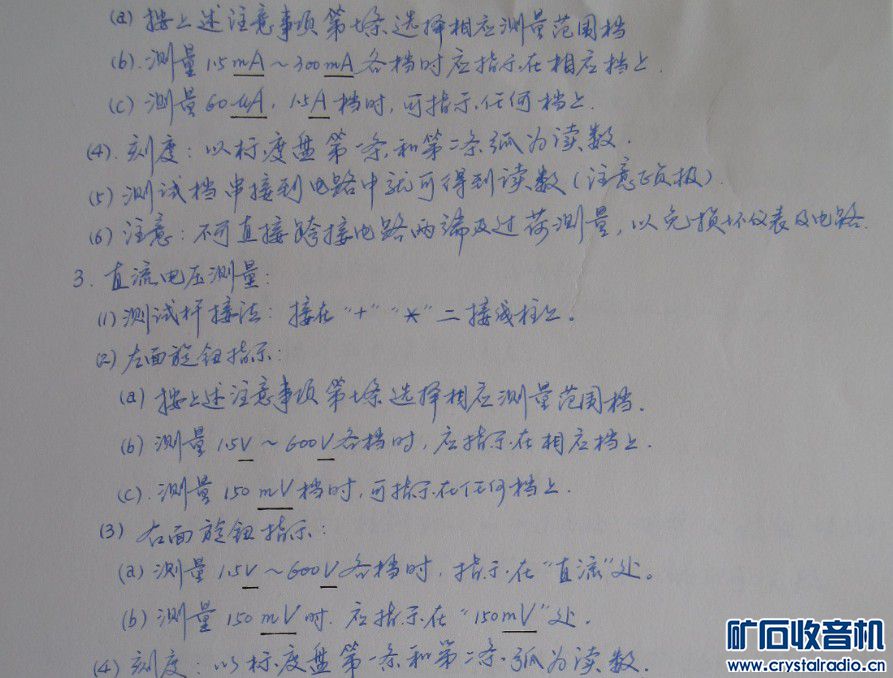 (a) 按上述注意事项第七条选择相应测量范围档
(b). 测量 1.5mA～300mA 各档时应指示在相应档上.
(c) 测量 60μA, 1.5A 档时, 可指示任何档上.
(4). 刻度: 以标度盘第一条和第二条弧为读数.
(5) 测试档串接到电路中就可得到读数(注意正负极).
(6) 注意: 不可直接跨接电路两端及过荷测量, 以免损坏仪表及电路.
3. 直流电压测量:
(1) 测试杆接法: 接在 "+" "*" 二接线柱上。
(2) 左面旋钮指示:
(a) 按上述注意事项第七条选择相应测量范围档.
(b) 测量 1.5V～600V 各档时, 应指示在相应档上.
(c). 测量 150mV 档时, 可指示在任何档上.
(3) 右面旋钮指示:
(a) 测量 1.5V～600V 各档时, 指示在"直流"处。
(b) 测量 150mV 时. 应指示在 "150mV" 处.
(4) 刻度: 以标度盘第一条和第二条弧为读数.
矿石收音机
www.crystalradio.cn